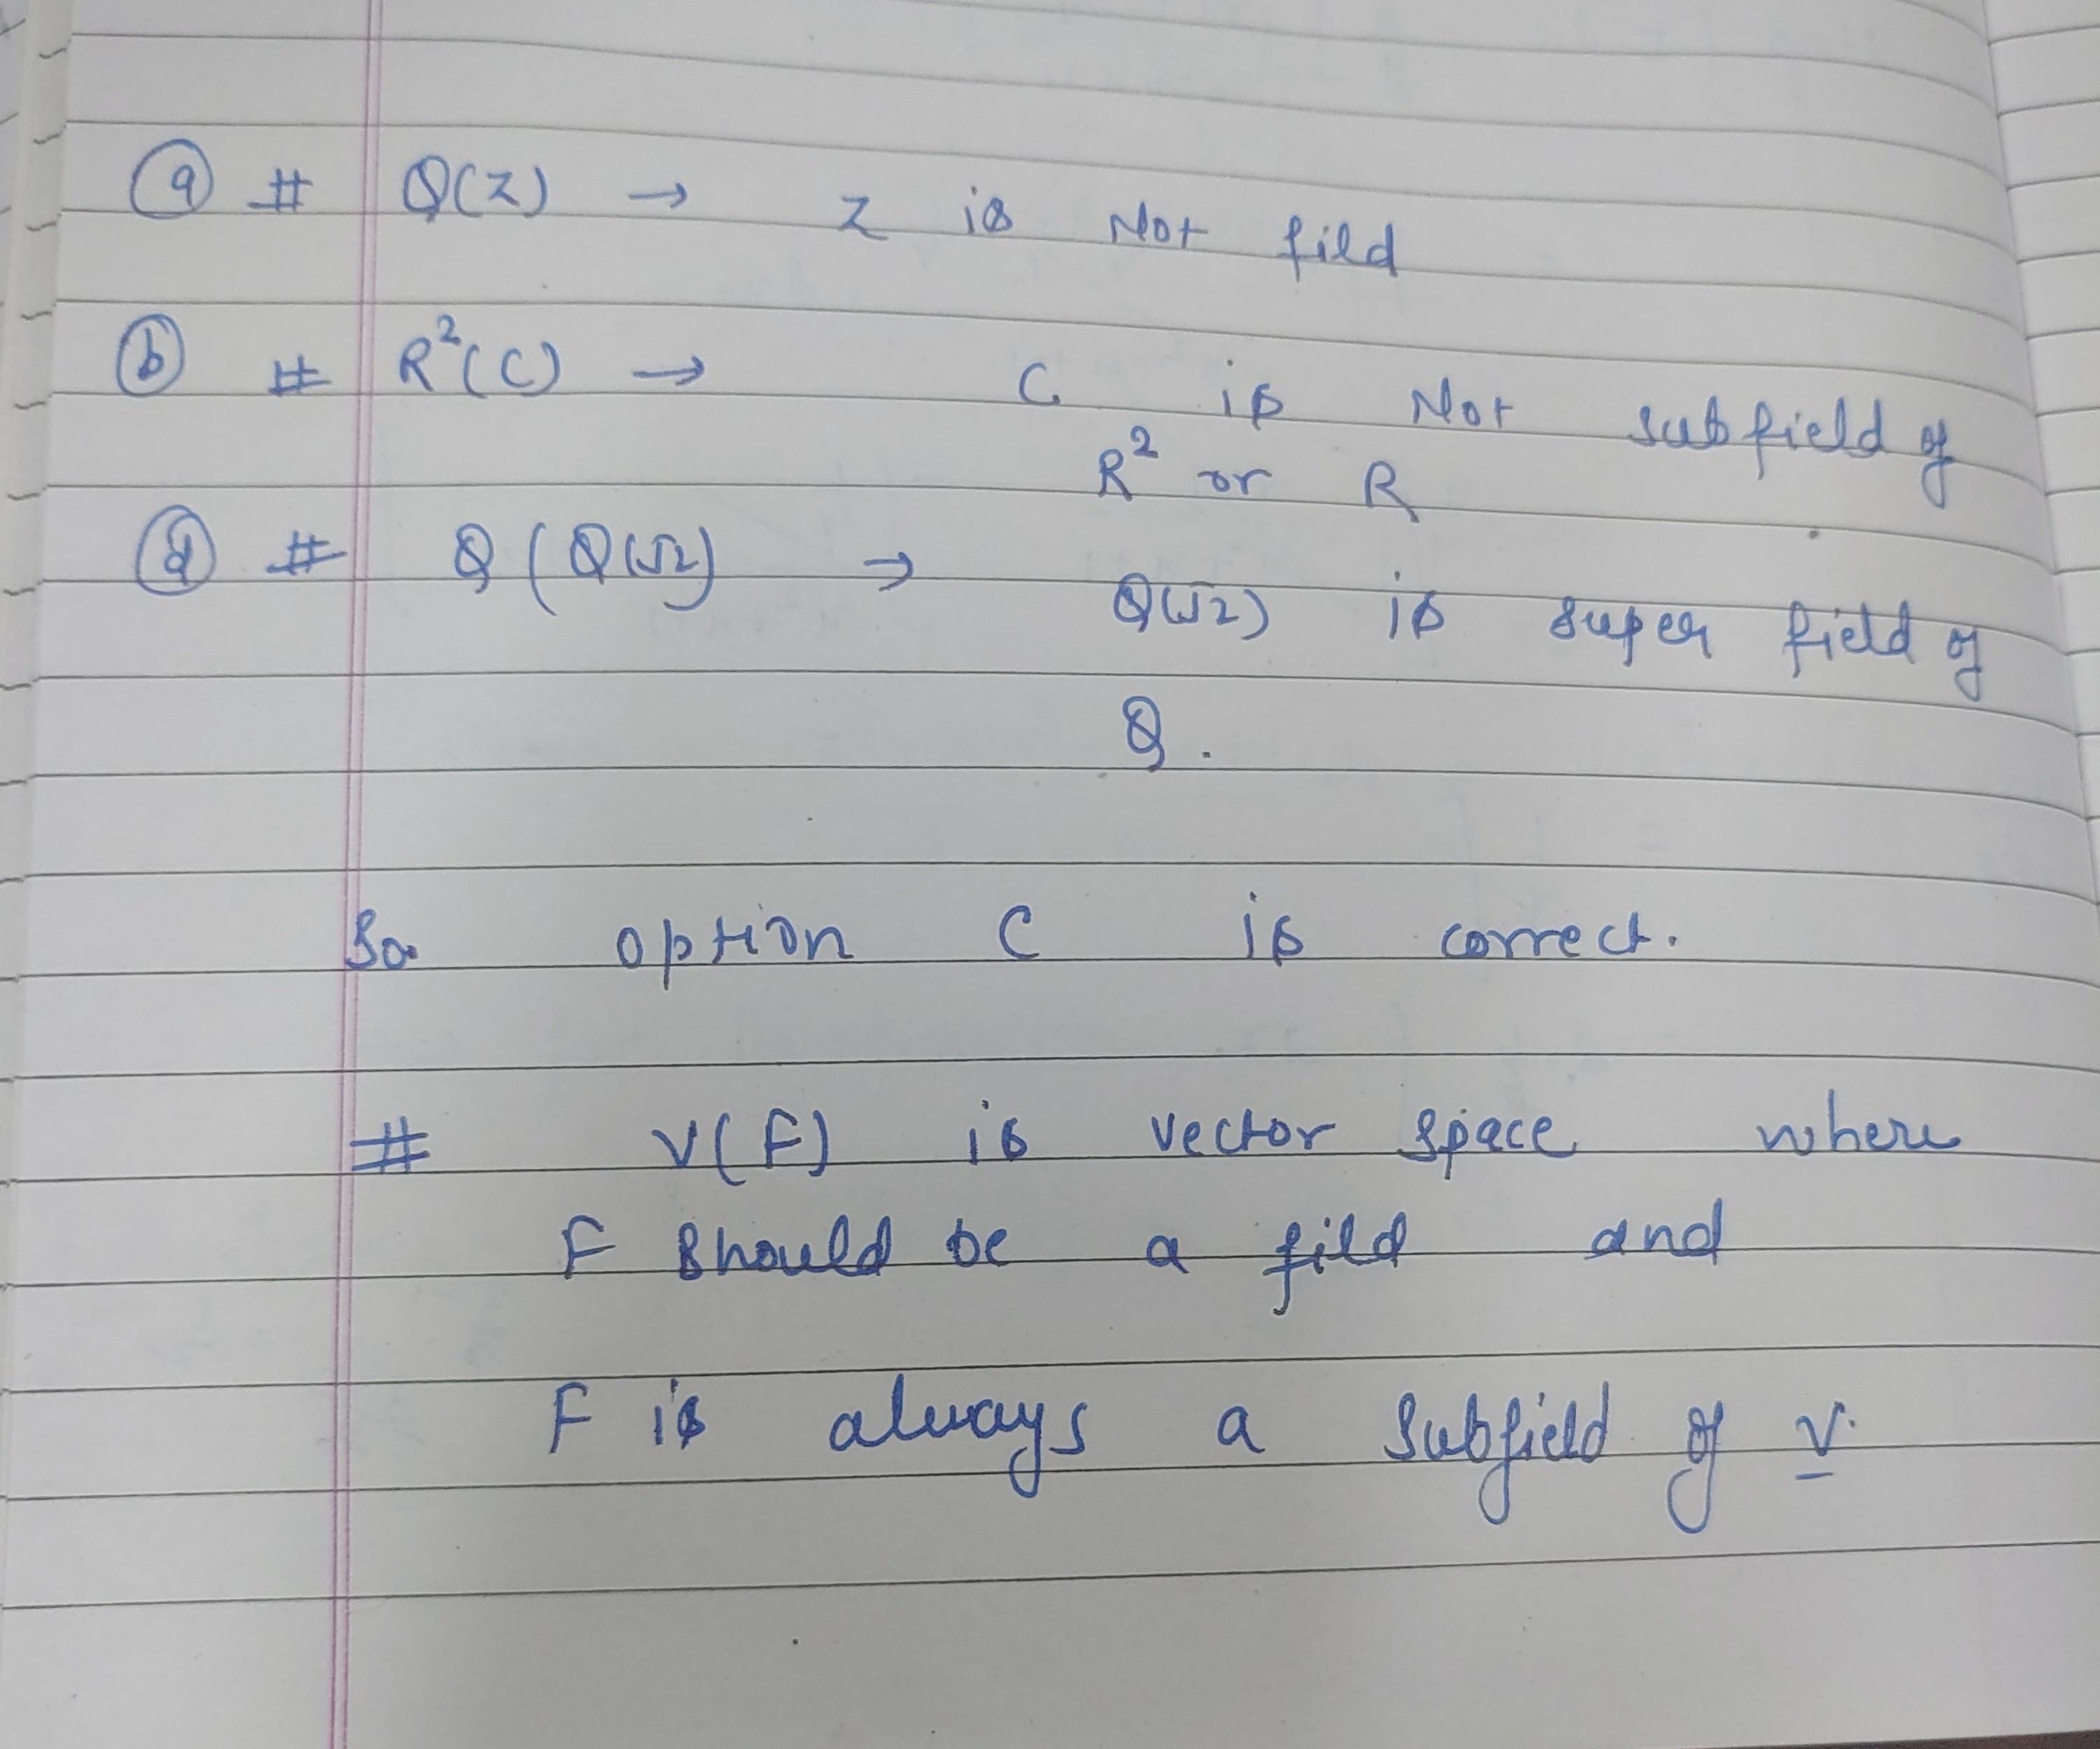 ⓐ # Q(Z) → Z is Not fild
ⓑ # R²(C) → C is Not subfield of
R² or R
ⓓ # Q(Q(√2) → Q(√2) is super field of
Q.
So option C is correct.
# V(F) is vector space where
F should be a fild and
F is always a subfield of V.